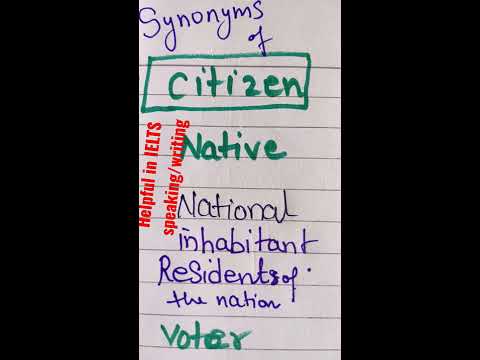 Synonyms
of
citizen
Native
National
inhabitant
Residents of
the nation
Voter
Helpful in IELTS
speaking/writing